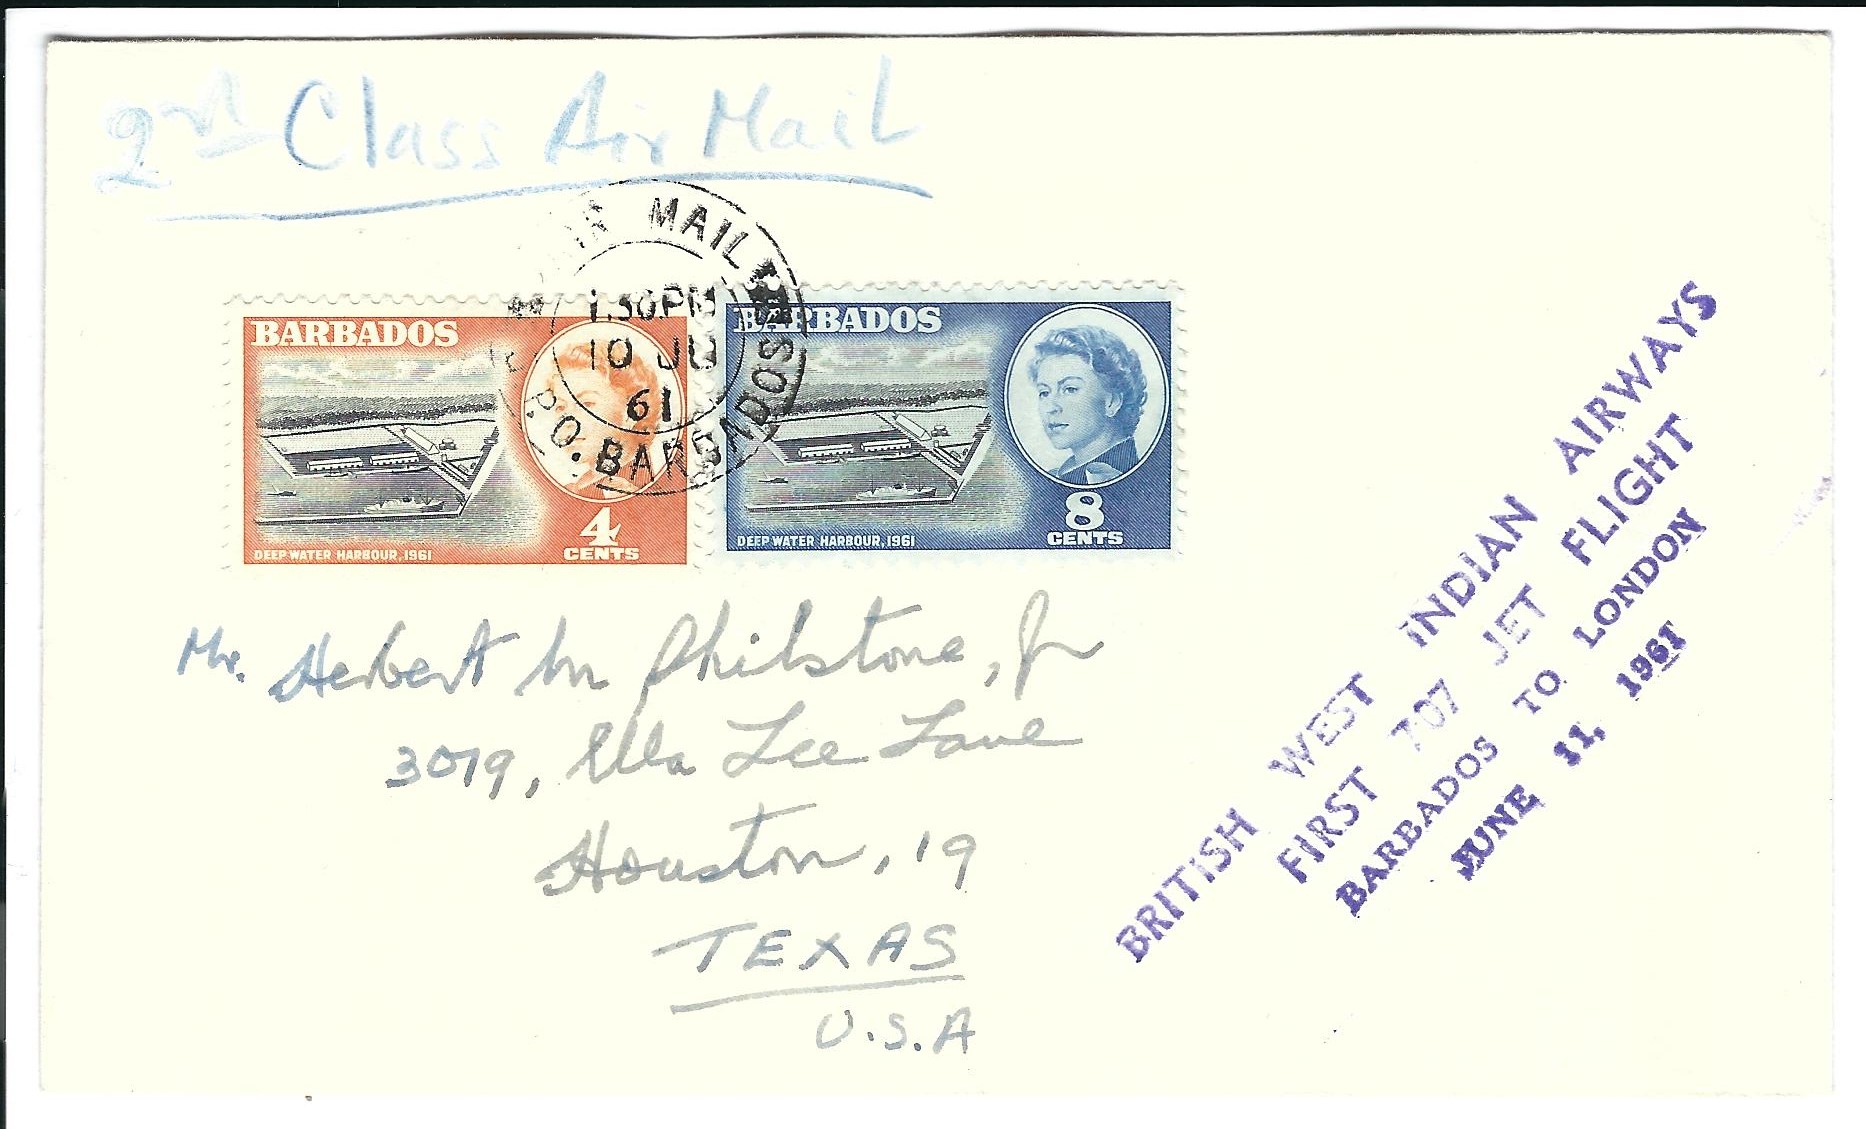 2nd Class Air Mail
AIR MAIL
1.30PM
10 JU
61
G.P.O. BARBADOS
BARBADOS
DEEP WATER HARBOUR, 1961
4
CENTS
BARBADOS
DEEP WATER HARBOUR, 1961
8
CENTS
Mr. Herbert M Philstone, Jr
3019, Ella Lee Lane
Houston, 19
TEXAS
U.S.A
BRITISH WEST INDIAN AIRWAYS
FIRST 707 JET FLIGHT
BARBADOS TO LONDON
JUNE 11, 1961